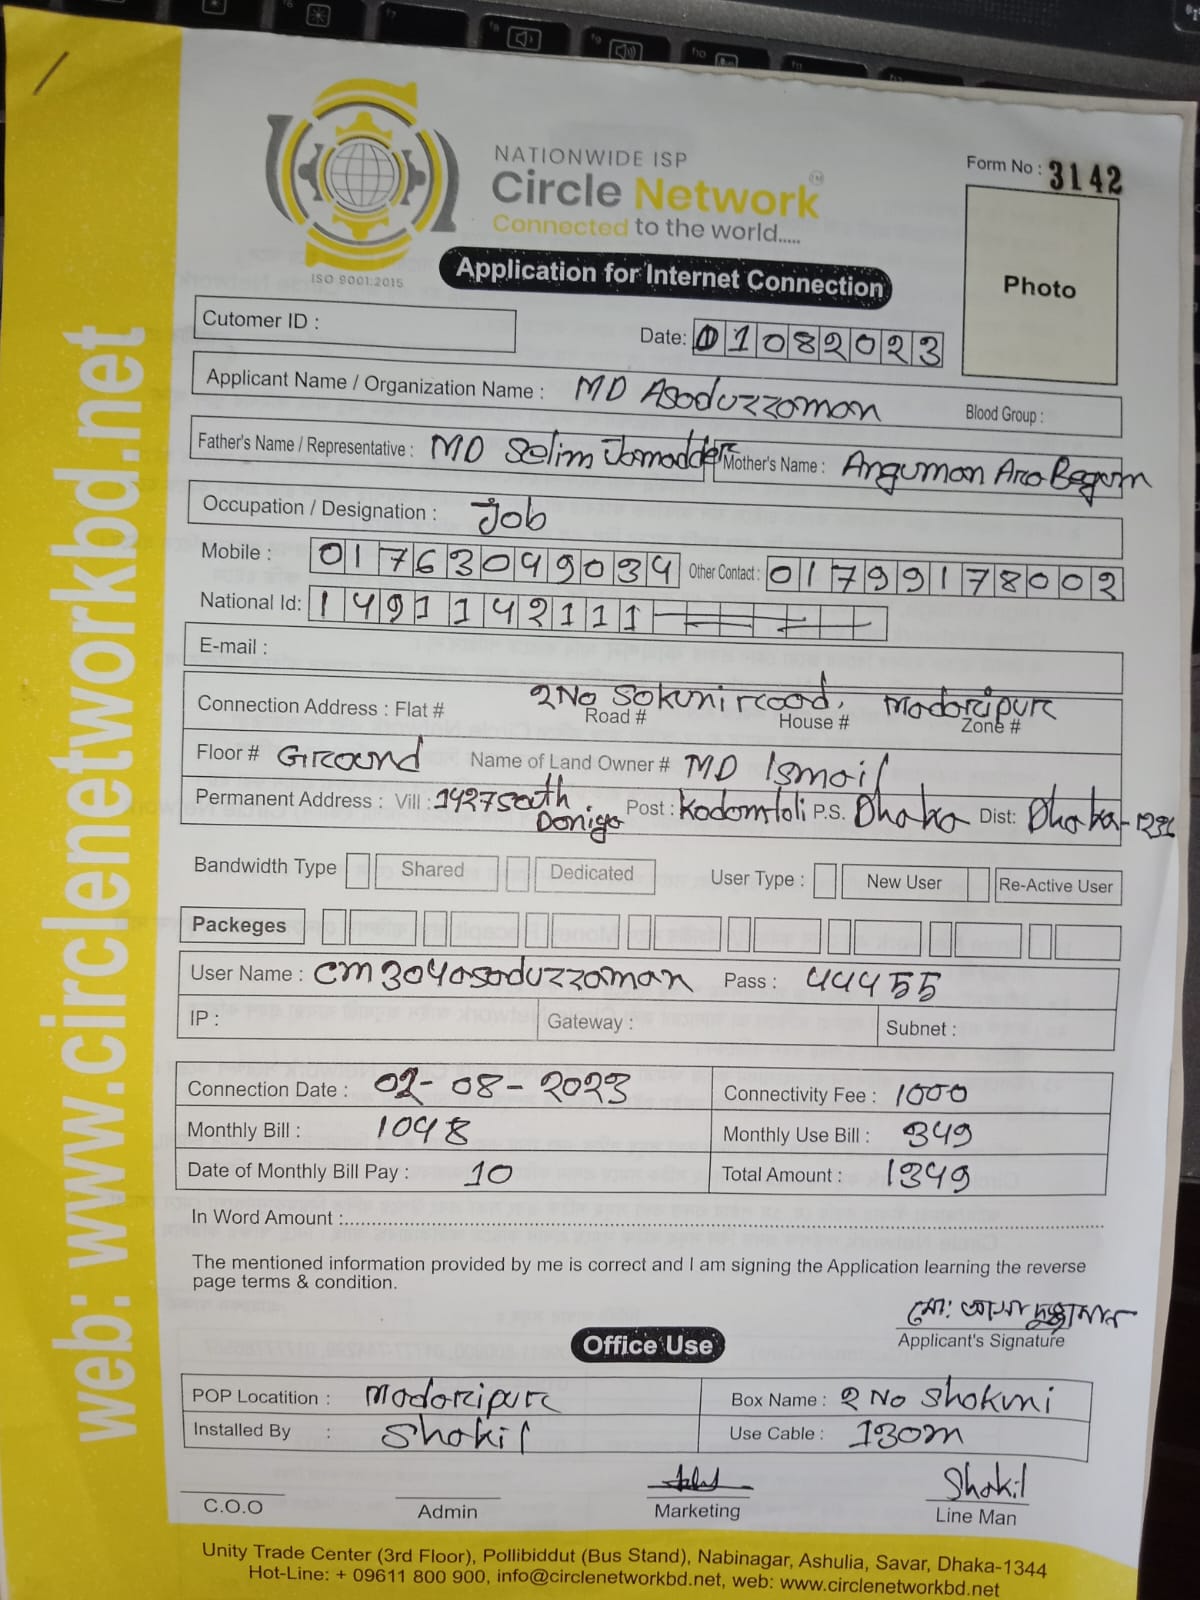 NATIONWIDE ISP
Circle Network TM
Connected to the world.....
ISO 9001:2015
Form No : 3142
Photo
Application for Internet Connection
Cutomer ID :
Date: 01082023
Applicant Name / Organization Name : MD Asaduzzaman
Blood Group :
Father's Name / Representative : MD Selim Jamadder Mother's Name : Anguman Ara Begum
Occupation / Designation : Job
Mobile : 01763049034 Other Contact : 01799178002
National Id: 1491142111
E-mail :
Connection Address : Flat # 2No Sokuni road, Madaripur
Road # House # Zone #
Floor # Ground Name of Land Owner # MD Ismail
Permanent Address : Vill : 1427 South Doniya Post : Kodomtoli P.S. Dhaka Dist: Dhaka-1236
Bandwidth Type Shared Dedicated User Type : New User Re-Active User
Packeges
User Name : cm304asaduzzaman Pass : 44455
IP : Gateway : Subnet :
Connection Date : 02-08-2023 Connectivity Fee : 1000
Monthly Bill : 1048 Monthly Use Bill : 349
Date of Monthly Bill Pay : 10 Total Amount : 1349
In Word Amount :
The mentioned information provided by me is correct and I am signing the Application learning the reverse
page terms & condition.
মো: আসাদুজ্জামান
Applicant's Signature
Office Use
POP Locatition : Madaripur Box Name : 2 No Shokuni
Installed By : Shakil Use Cable : 130m
Shakil
C.O.O Admin Marketing Line Man
Unity Trade Center (3rd Floor), Pollibiddut (Bus Stand), Nabinagar, Ashulia, Savar, Dhaka-1344
Hot-Line: + 09611 800 900, info@circlenetworkbd.net, web: www.circlenetworkbd.net
web: www.circlenetworkbd.net